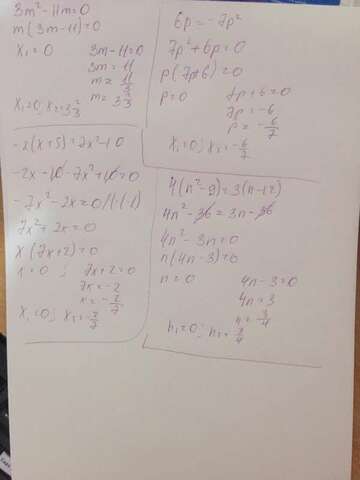 3m² - 11m = 0
m(3m - 11) = 0
x₁ = 0 3m - 11 = 0
3m = 11
m = 11/3
m = 3 2/3
x₁ = 0; x₂ = 3 2/3
6p = -7p²
7p² + 6p = 0
p(7p+6) = 0
p = 0 7p + 6 = 0
7p = -6
p = -6/7
x₁ = 0; x₂ = -6/7
-2(x+5) = 7x² - 10
-2x - 10 - 7x² + 10 = 0
-7x² - 2x = 0 /·(-1)
7x² + 2x = 0
x(7x+2) = 0
x = 0; 7x + 2 = 0
7x = -2
x = -2/7
x₁ = 0; x₂ = -2/7
4(n² - 9) = 3(n - 12)
4n² - 36 = 3n - 36
4n² - 3n = 0
n(4n - 3) = 0
n = 0 4n - 3 = 0
4n = 3
n = 3/4
n₁ = 0; n₂ = 3/4